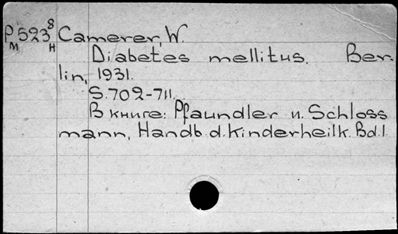 P523⁸ Camerer, W.
М Н
Diabetes mellitus. Ber-
lin, 1931.
S. 702-711.
В книге: Pfaundler u. Schloss
mann, Handb. d. Kinderheilk. Bd. 1.